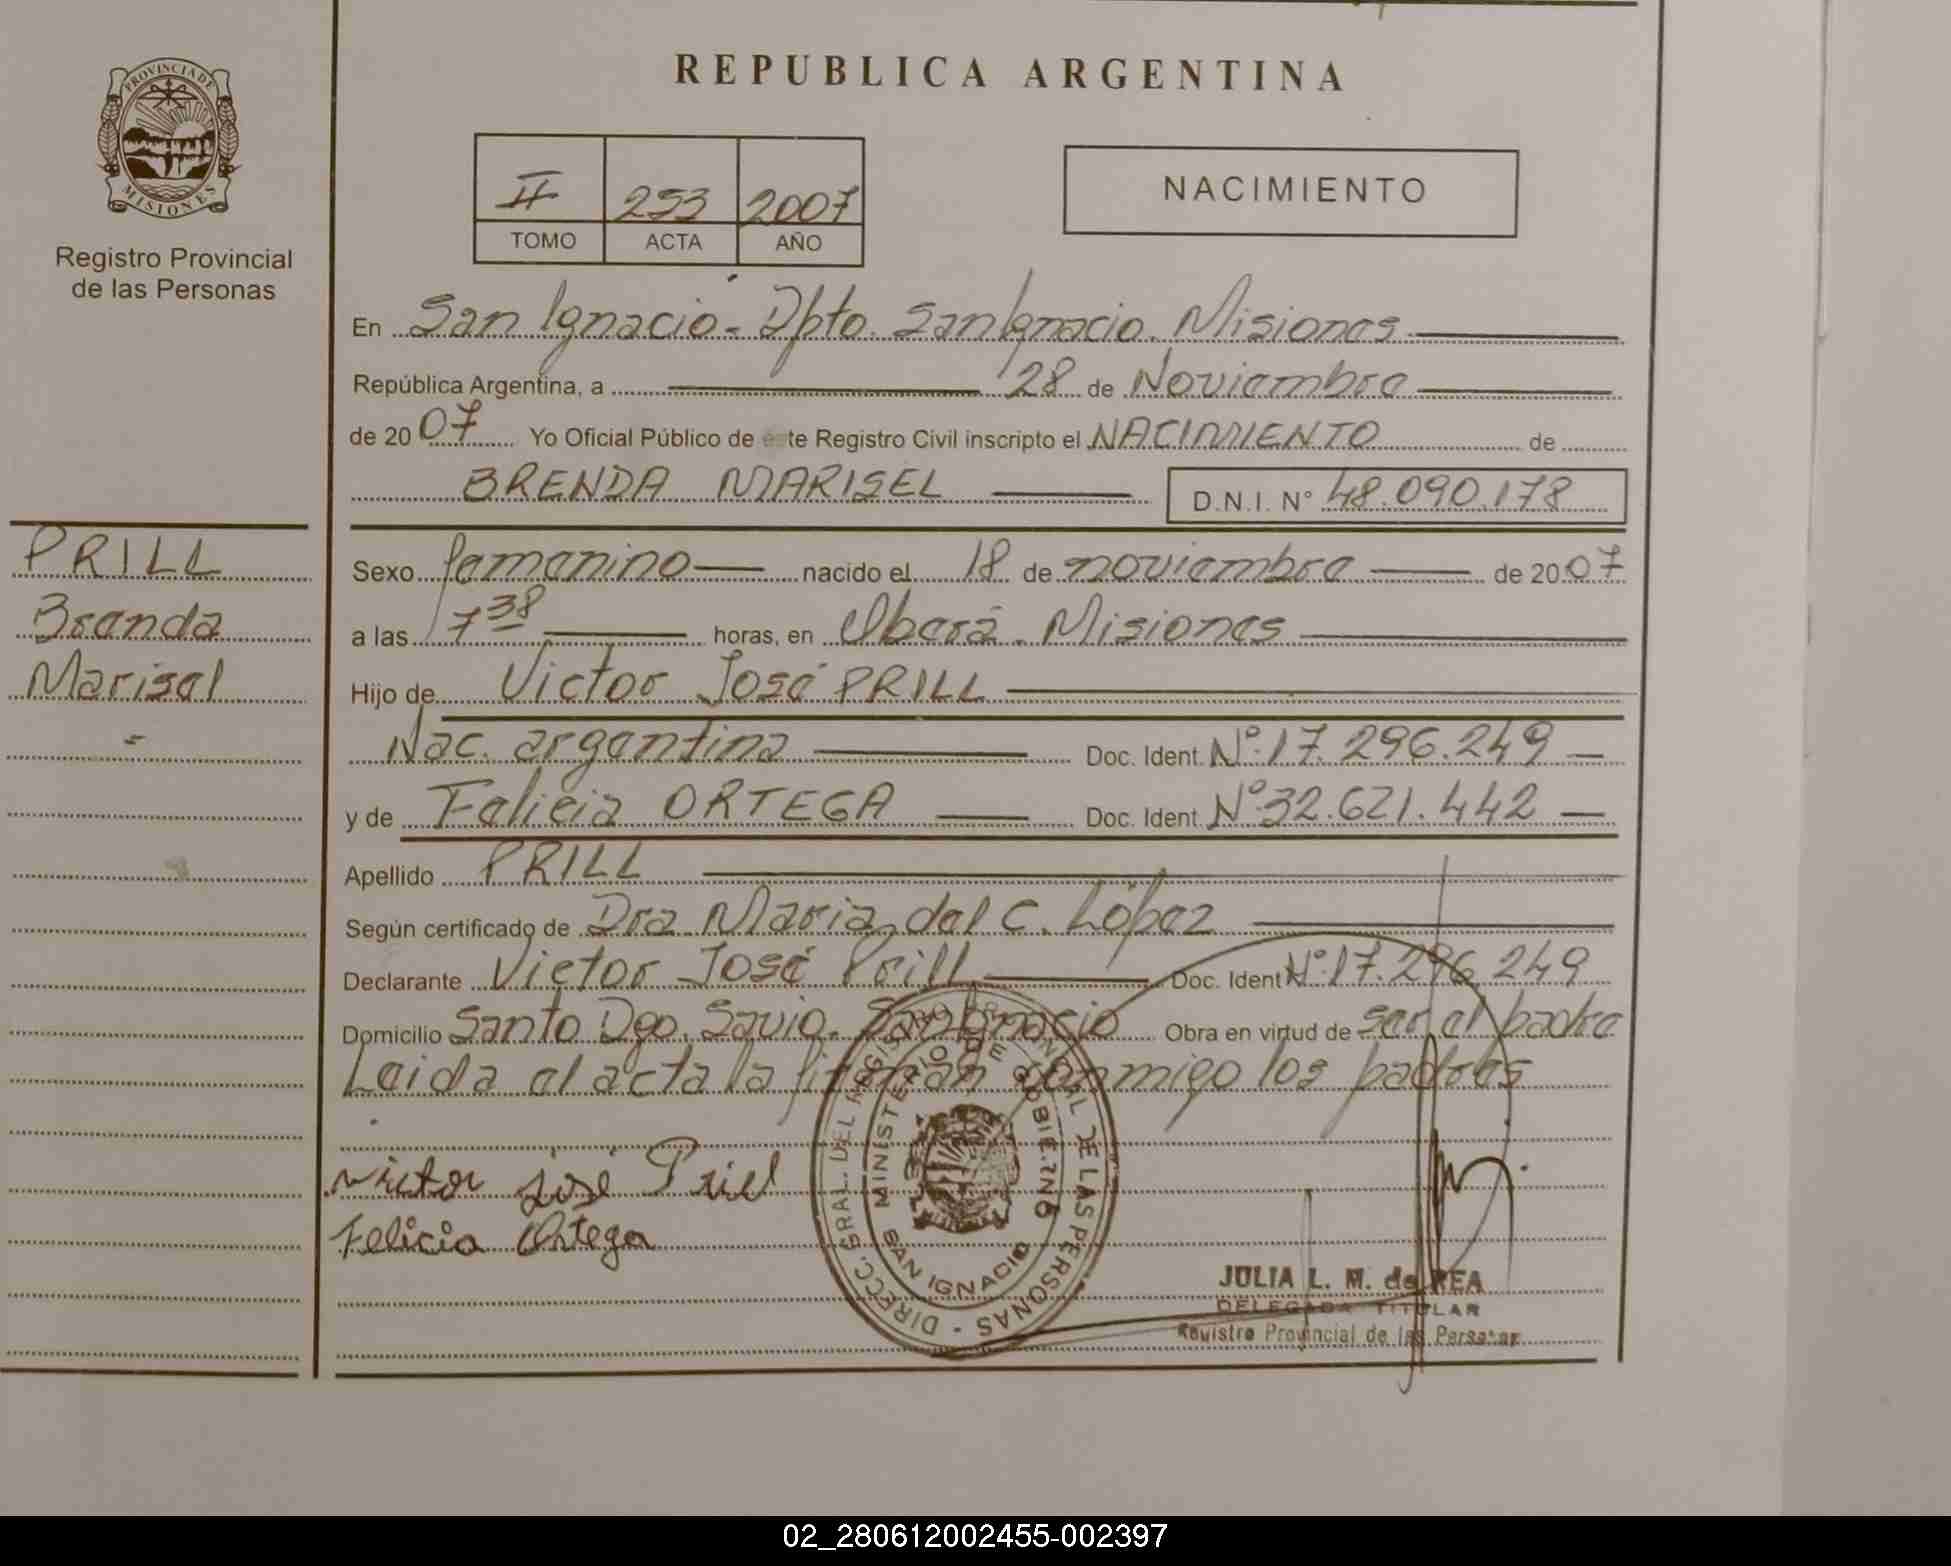 REPUBLICA ARGENTINA
PROVINCIA DE MISIONES
Registro Provincial
de las Personas
II 253 2007
TOMO ACTA AÑO
NACIMIENTO
En San Ignacio - Dpto. San Ignacio. Misiones
República Argentina, a 28 de Noviembre
de 2007 Yo Oficial Público de este Registro Civil inscripto el NACIMIENTO de
BRENDA MARISEL D.N.I. N° 48.090.178
PRILL
Brenda
Marisel
Sexo femenino nacido el 18 de noviembre de 2007
a las 7 38 horas, en Oberá - Misiones
Hijo de Victor José PRILL
Nac. argentina Doc. Ident. N° 17.296.249
y de Felicia ORTEGA Doc. Ident. N° 32.621.442
Apellido PRILL
Según certificado de Dra Maria del C. López
Declarante Victor José Prill Doc. Ident N° 17.296.249
Domicilio Santo Dgo. Savio. San Ignacio Obra en virtud de ser el padre
Leida el acta la firman conmigo los padres
victor josé Priel
Felicia Ortega
DIRECC. GRAL. DEL REGISTRO PROVINCIAL DE LAS PERSONAS -
MINISTERIO DE GOBIERNO
SAN IGNACIO
JULIA L. M. de REA
DELEGADA TITULAR
Registro Provincial de las Personas
02_280612002455-002397